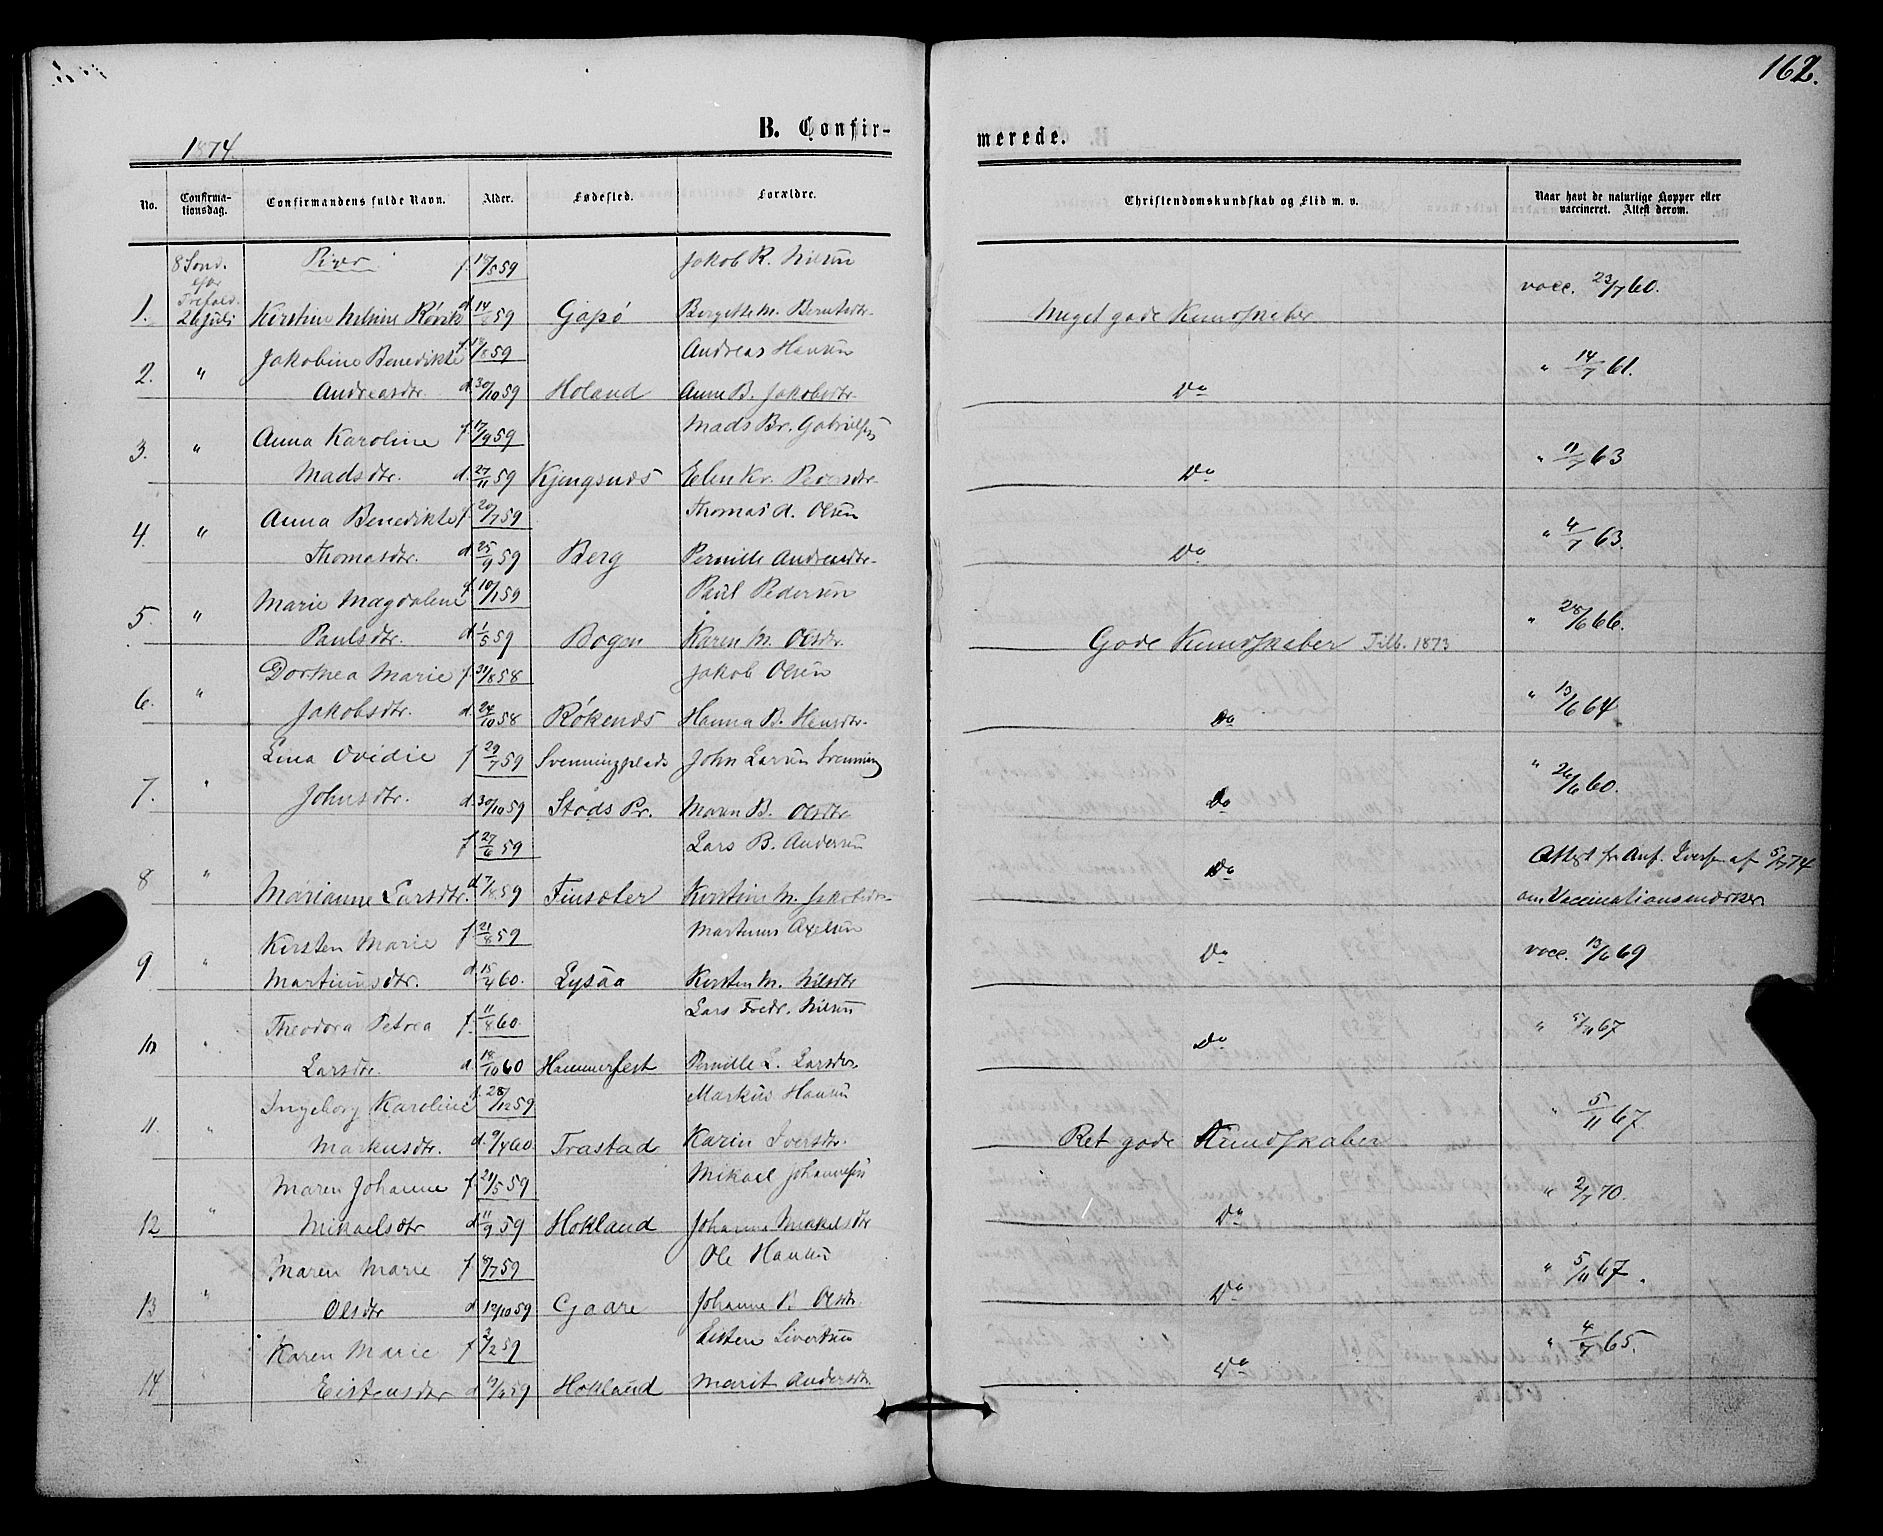 162.
1874.
B. Confirmerede.
No. Confirmationsdag. Confirmandens fulde Navn. Alder. Fødested. Forældre. Christendomskundskab og Flid m. v. Naar havt de naturlige Kopper eller vaccineret. Attest derom.
8 Sønd. Piger f. 59 Jakob R.
efter
Trefold. vacc. 23/7 60.
1. 26 Juli Kirstine d. 14 59 Gapø Meget gode Kundskaber
Jakobine Benedikte f. 59 Andreas Hansen
2. " Andreasdtr. d. 30/10 59 Holand Anne B. Jakobsdtr. Do " 14/7 61.
Anna Karoline f. 17/9 59 Mads Br.
3. " Madsdtr. d. 27/11 59 Kjengsnæs Elen Kr. Pedersdtr. Do " 11/7 63
Anna Benedikte f. 20/7 59 Thomas A. Olsen
4. " Thomasdtr. d. 25/9 59 Berg Pernille Andreasdtr. Do " 4/7 63.
Marie Magdalene f. 10/1 59 Paul Pedersen
5. " Paulsdtr. d. 1/5 59 Bogen Karen M. Olsdtr. Gode Kundskaber Tilb. 1873 " 28/6 66.
Dorthea Marie f. 31/8 58 Jakob Olsen
6. " Jakobsdtr. d. 24/10 58 Røkenæs Hanna B. Hansdtr. Do " 13/6 64
Lina Ovidie f. 29/7 59 John Larsen
7. " Johnsdtr. d. 30/10 59 Stods Pr. Maren B. Olsdtr. Do " 26/6 60.
f. 27/6 59 Lars B. Andersen
8 " Marianne Larsdtr. d. 7/8 59 Finsæter Kirstine M. Do Attest fr. Anf. Iversen af 5/7 74
om Vaccinationsmærker
Kirsten Marie f. 21/8 59 Martinus Axelsen
9 " Martinusdtr. d. 15/4 60. Lysaa Kirsten M. Nilsdtr. Do vacc. 13/6 69
Theodora Petrea f. 11/8 60. Lars Fredr. Nilsen
10 " Larsdtr. d. 18/10 60 Hammerfest Pernille L. Larsdtr. Do " 5/11 67
Ingeborg Karoline f. 28/12 59 Markus Hansen
11. " Markusdtr. d. 9/4 60 Trastad Karin Iversdtr. Ret gode Kundskaber " 5/11 67.
Maren Johanne f. 21/5 59 Mikael Johannesen
12 " Mikaelsdtr d. 11/9 59 Hokland Johanna Do " 2/7 70.
Maren Marie f. 59 Ole Hansen
13 " Olsdtr d. 12/10 59 Gaare Johanne P. Olsdtr. Do " 5/11 67.
Karen Marie f. 2/2 59 Eisten Sivertsen
14 " Eistensdtr d. 59 Hokland Marit Andersdtr. Do " 4/7 65.